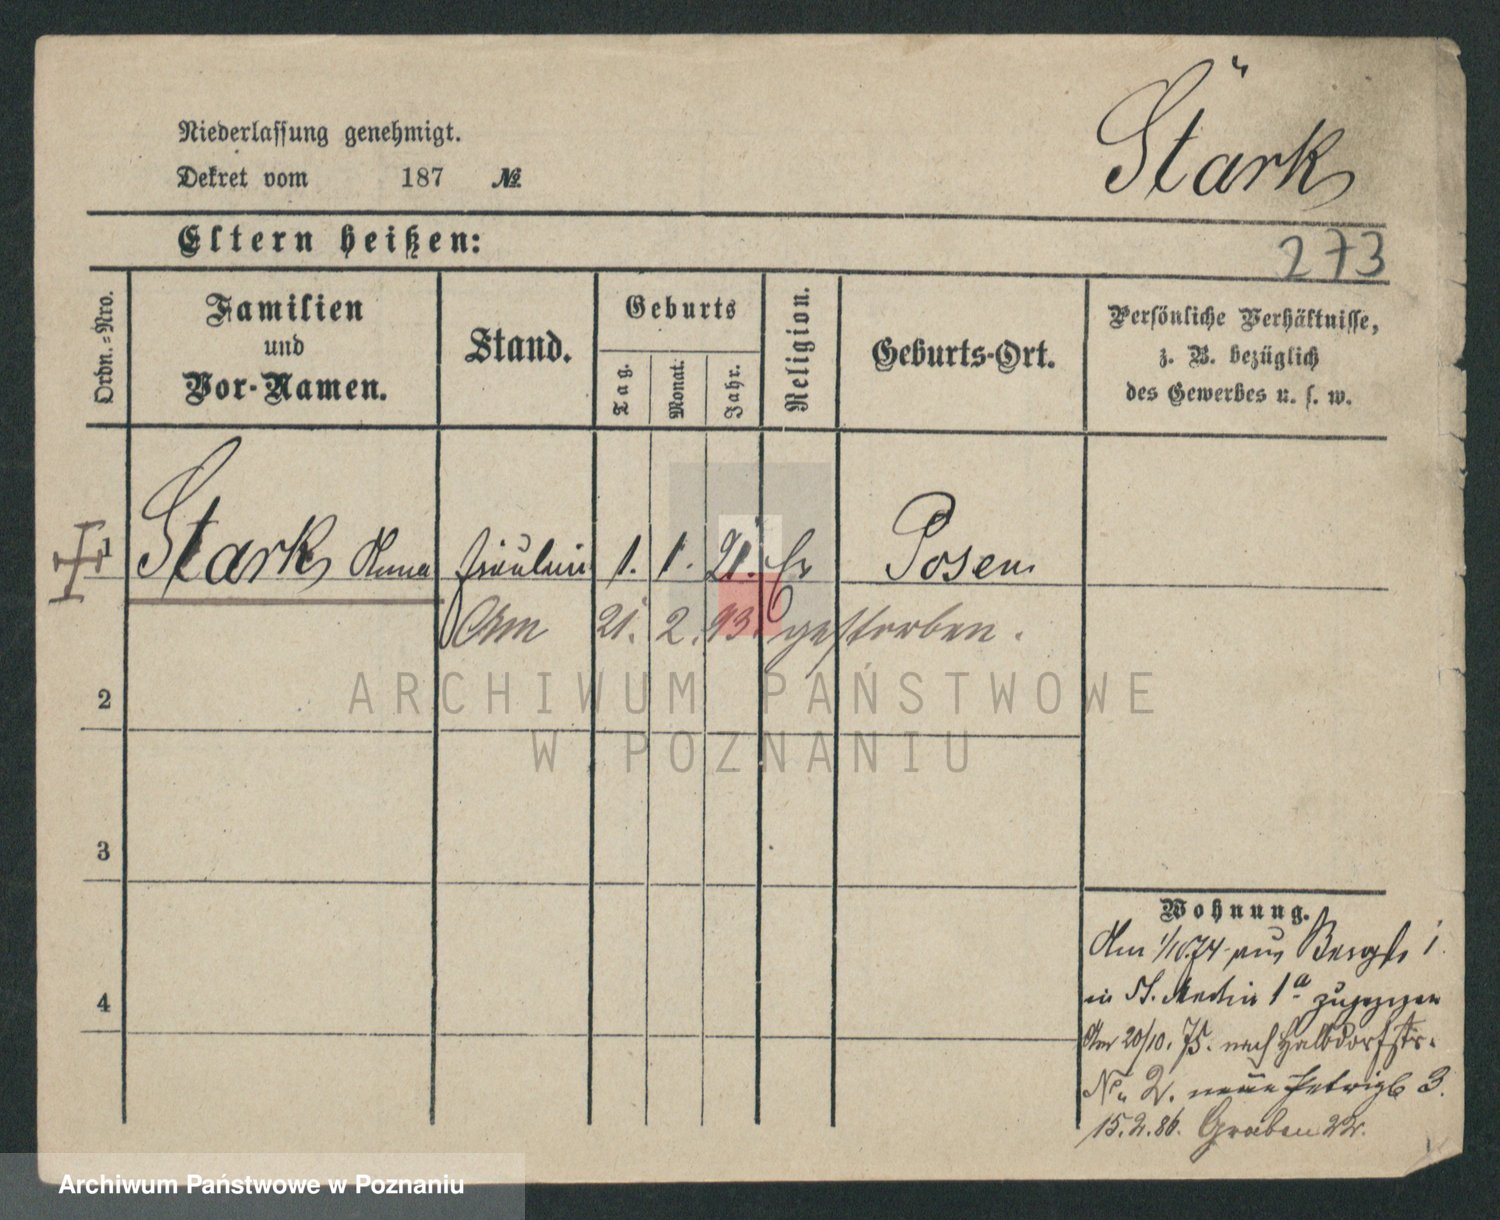 Stärk
Niederlassung genehmigt.
Dekret vom 187 №
Eltern heißen:
273
Ordn.=Nro.
Familien
und
Vor-Namen.
Stand.
Geburts
Tag.
Monat.
Jahr.
Religion.
Geburts-Ort.
Persönliche Verhältnisse,
z. B. bezüglich
des Gewerbes u. s. w.
1 Stark Anna Fräulein 1. 1. 21. Posen
Am 21. 2. 93. gestorben.
2
ARCHIWUM PAŃSTWOWE
W POZNANIU
3
4
Wohnung.
Am 1/10.74 aus
in St. Martin 1a zugezogen
Am 20/10. 75. nach Halbdorfstr.
No. 2. 3.
15.2.86. Graben 22.
Archiwum Państwowe w Poznaniu